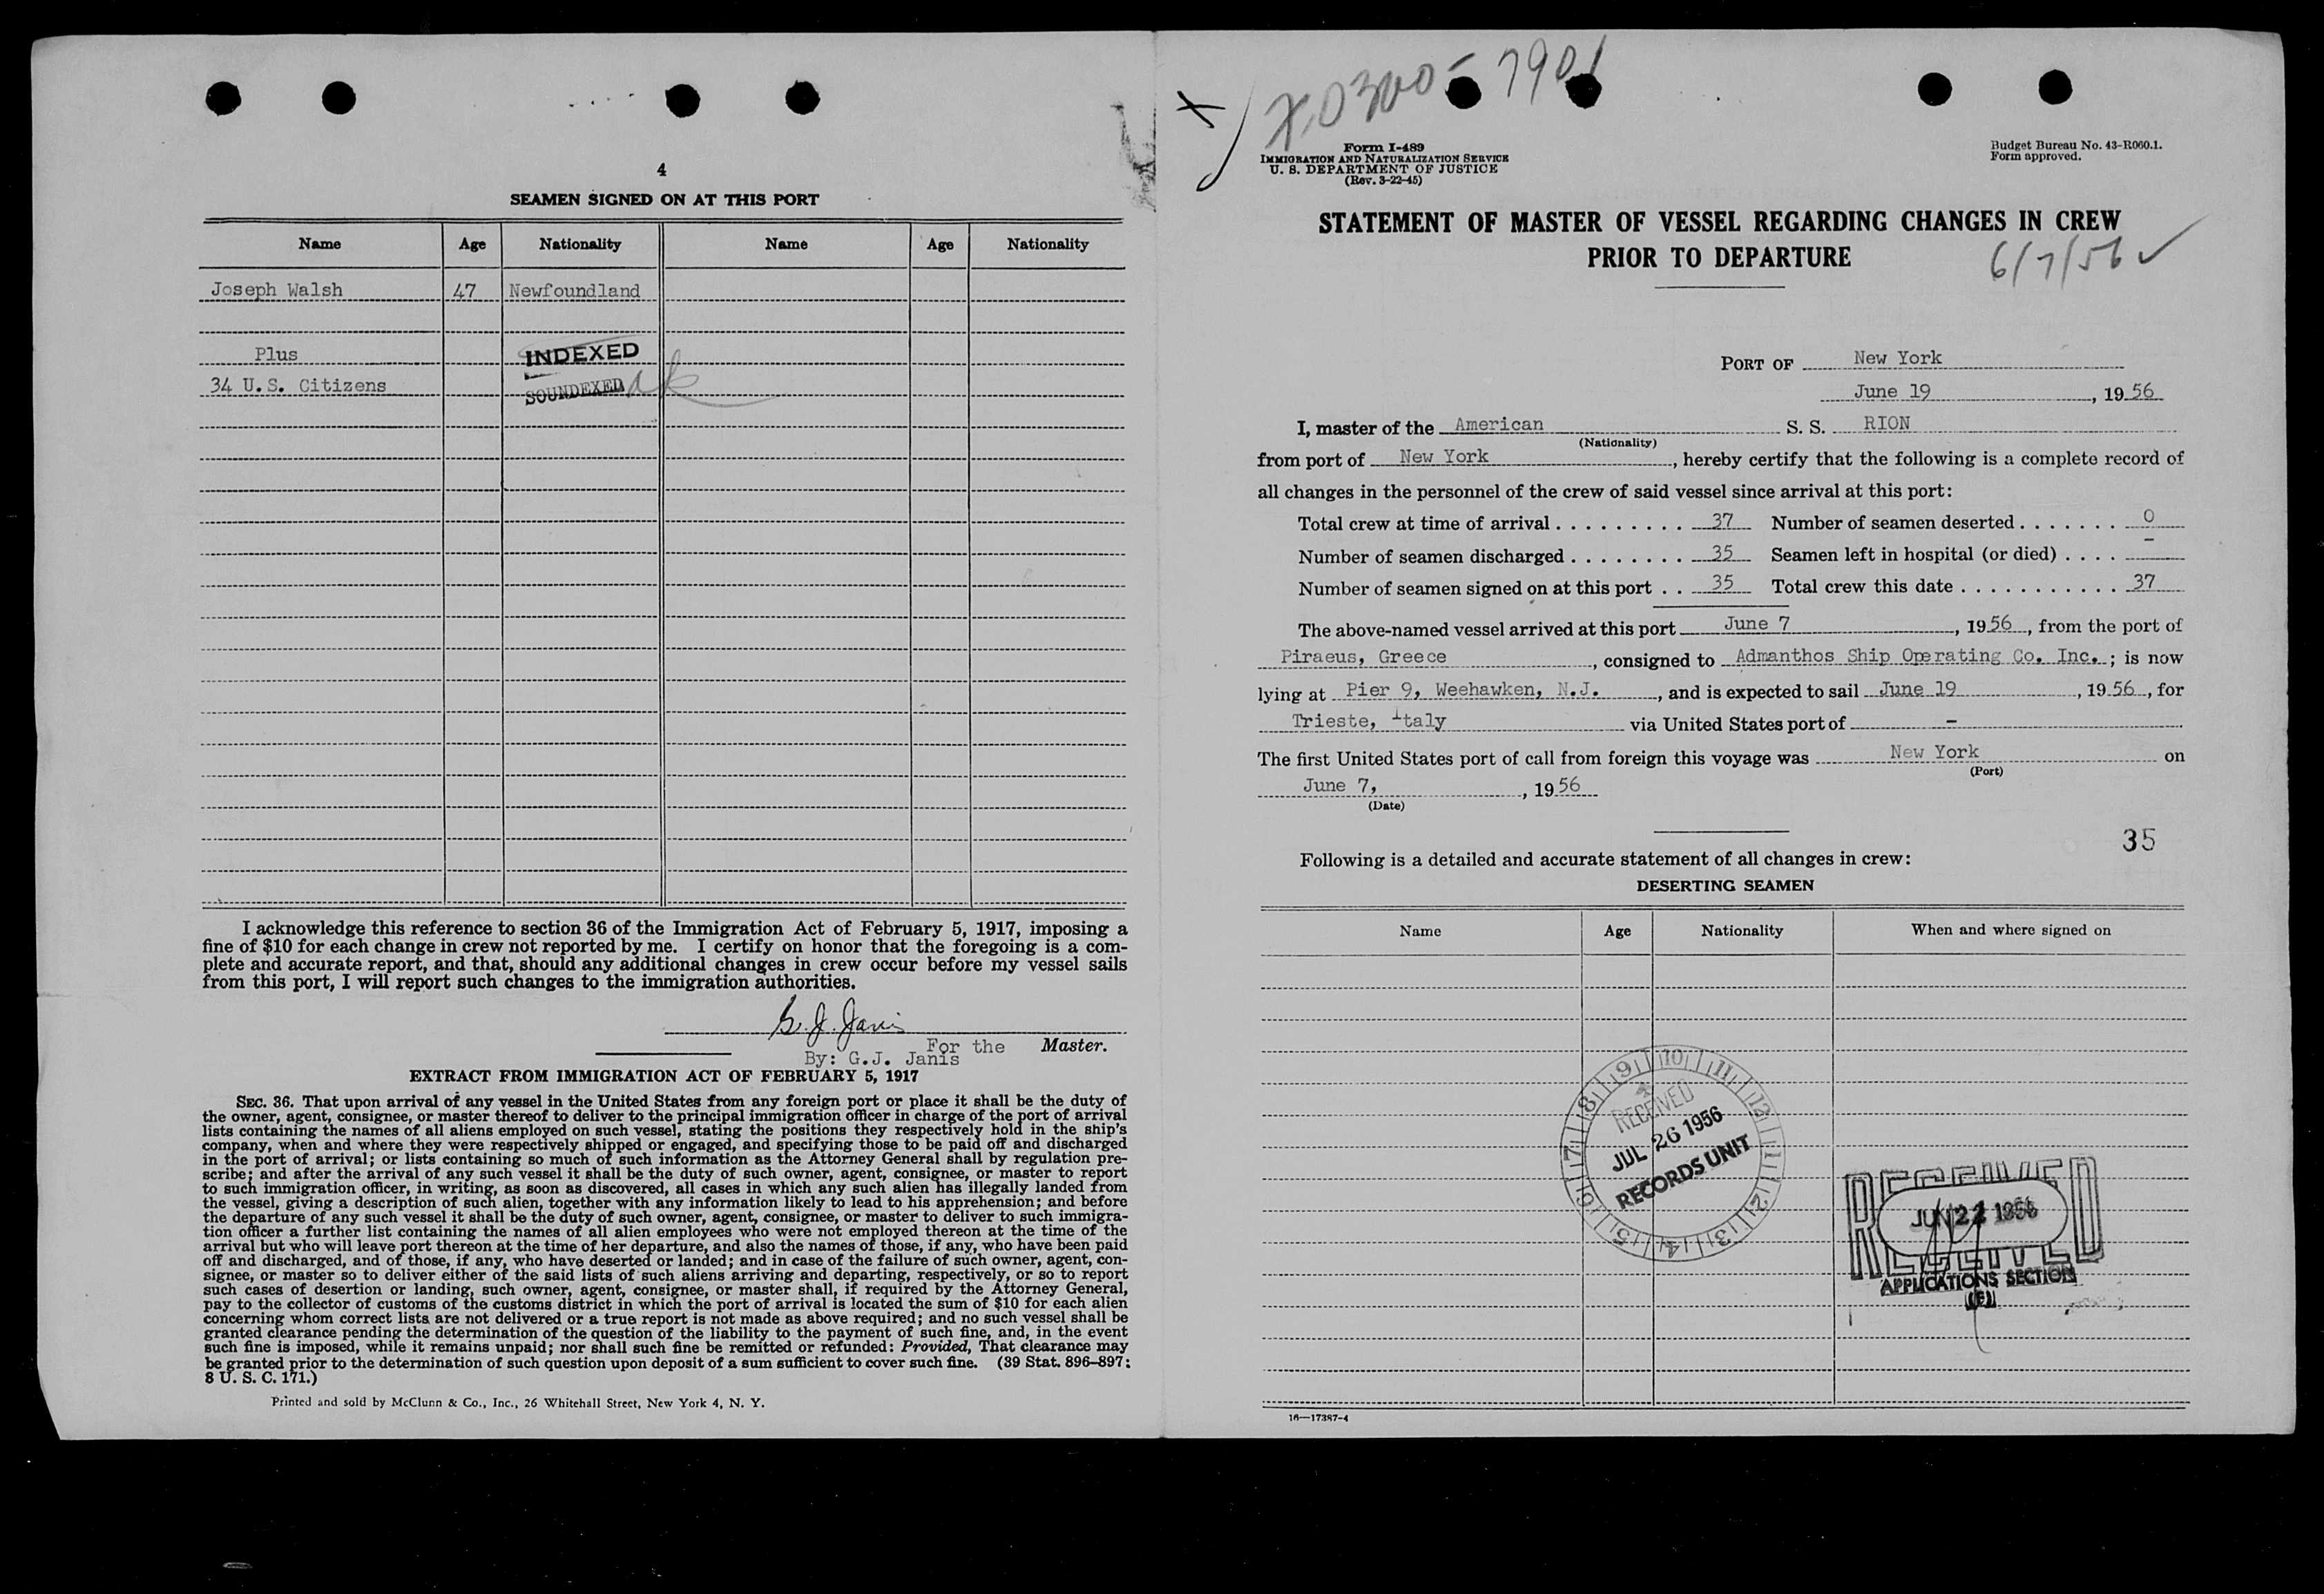 4
SEAMEN SIGNED ON AT THIS PORT
Name Age Nationality Name Age Nationality
Joseph Walsh 47 Newfoundland
Plus
INDEXED
34 U.S. Citizens
SOUNDEXED
I acknowledge this reference to section 36 of the Immigration Act of February 5, 1917, imposing a
fine of $10 for each change in crew not reported by me. I certify on honor that the foregoing is a com-
plete and accurate report, and that, should any additional changes in crew occur before my vessel sails
from this port, I will report such changes to the immigration authorities.
G. J. Janis
For the Master.
By: G.J. Janis
EXTRACT FROM IMMIGRATION ACT OF FEBRUARY 5, 1917
SEC. 36. That upon arrival of any vessel in the United States from any foreign port or place it shall be the duty of
the owner, agent, consignee, or master thereof to deliver to the principal immigration officer in charge of the port of arrival
lists containing the names of all aliens employed on such vessel, stating the positions they respectively hold in the ship's
company, when and where they were respectively shipped or engaged, and specifying those to be paid off and discharged
in the port of arrival; or lists containing so much of such information as the Attorney General shall by regulation pre-
scribe; and after the arrival of any such vessel it shall be the duty of such owner, agent, consignee, or master to report
to such immigration officer, in writing, as soon as discovered, all cases in which any such alien has illegally landed from
the vessel, giving a description of such alien, together with any information likely to lead to his apprehension; and before
the departure of any such vessel it shall be the duty of such owner, agent, consignee, or master to deliver to such immigra-
tion officer a further list containing the names of all alien employees who were not employed thereon at the time of the
arrival but who will leave port thereon at the time of her departure, and also the names of those, if any, who have been paid
off and discharged, and of those, if any, who have deserted or landed; and in case of the failure of such owner, agent, con-
signee, or master so to deliver either of the said lists of such aliens arriving and departing, respectively, or so to report
such cases of desertion or landing, such owner, agent, consignee, or master shall, if required by the Attorney General,
pay to the collector of customs of the customs district in which the port of arrival is located the sum of $10 for each alien
concerning whom correct lists are not delivered or a true report is not made as above required; and no such vessel shall be
granted clearance pending the determination of the question of the liability to the payment of such fine, and, in the event
such fine is imposed, while it remains unpaid; nor shall such fine be remitted or refunded: Provided, That clearance may
be granted prior to the determination of such question upon deposit of a sum sufficient to cover such fine. (39 Stat. 896-897;
8 U. S. C. 171.)
Printed and sold by McClunn & Co., Inc., 26 Whitehall Street, New York 4, N. Y.
X 0300-7901
Form I-489
IMMIGRATION AND NATURALIZATION SERVICE
U. S. DEPARTMENT OF JUSTICE
(Rev. 3-22-45)
Budget Bureau No. 43-R060.1.
Form approved.
STATEMENT OF MASTER OF VESSEL REGARDING CHANGES IN CREW
PRIOR TO DEPARTURE
6/7/56 ✓
PORT OF New York
June 19, 1956
I, master of the American S. S. RION
(Nationality)
from port of New York, hereby certify that the following is a complete record of
all changes in the personnel of the crew of said vessel since arrival at this port:
Total crew at time of arrival . . . . . . . . . 37 Number of seamen deserted . . . . . . . 0
Number of seamen discharged . . . . . . . . 35 Seamen left in hospital (or died) . . . . -
Number of seamen signed on at this port . . 35 Total crew this date . . . . . . . . . . . 37
The above-named vessel arrived at this port June 7, 1956, from the port of
Piraeus, Greece, consigned to Admanthos Ship Operating Co. Inc.; is now
lying at Pier 9, Weehawken, N.J., and is expected to sail June 19, 1956, for
Trieste, Italy via United States port of -
The first United States port of call from foreign this voyage was New York on
(Port)
June 7, , 1956
(Date)
35
Following is a detailed and accurate statement of all changes in crew:
DESERTING SEAMEN
Name Age Nationality When and where signed on
9 10 11 12 1 2 3 4 5 6 7 8
RECEIVED
JUL 26 1956
RECORDS UNIT
RECEIVED
JUN 22 1956
RECEIVED
APPLICATIONS SECTION
(E)
16—17387-4